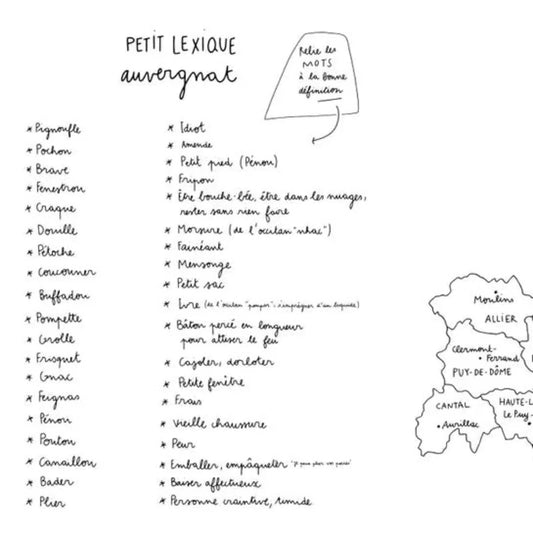 PETIT LEXIQUE
auvergnat
Relie les
MOTS
à la bonne
définition
* Pignoufle
* Pochon
* Brave
* Fenestrou
* Craque
* Douille
* Pétoche
* Coucouner
* Buffadou
* Pompette
* Grolle
* Frisquet
* Gnac
* Feignas
* Pénou
* Poutou
* Canaillou
* Bader
* Plier
* Idiot
* Amende
* Petit pied (Pénou)
* Fripon
* Être bouche-bée, être dans les nuages,
rester sans rien faire
* Morsure (de l'occitan "nhac")
* Fainéant
* Mensonge
* Petit sac
* Ivre (de l'occitan "pompar": s'imprégner d'un liquide)
* Bâton percé en longueur
pour attiser le feu
* Cajoler, dorloter
* Petite fenêtre
* Frais
* Vieille chaussure
* Peur
* Emballer, empaqueter "Je peux plier vos
* Baiser affectueux
* Personne craintive, timide
Moulins
ALLIER
Clermont-
Ferrand
PUY-DE-DÔME
CANTAL
Aurillac
HAUTE-L
Le Puy-